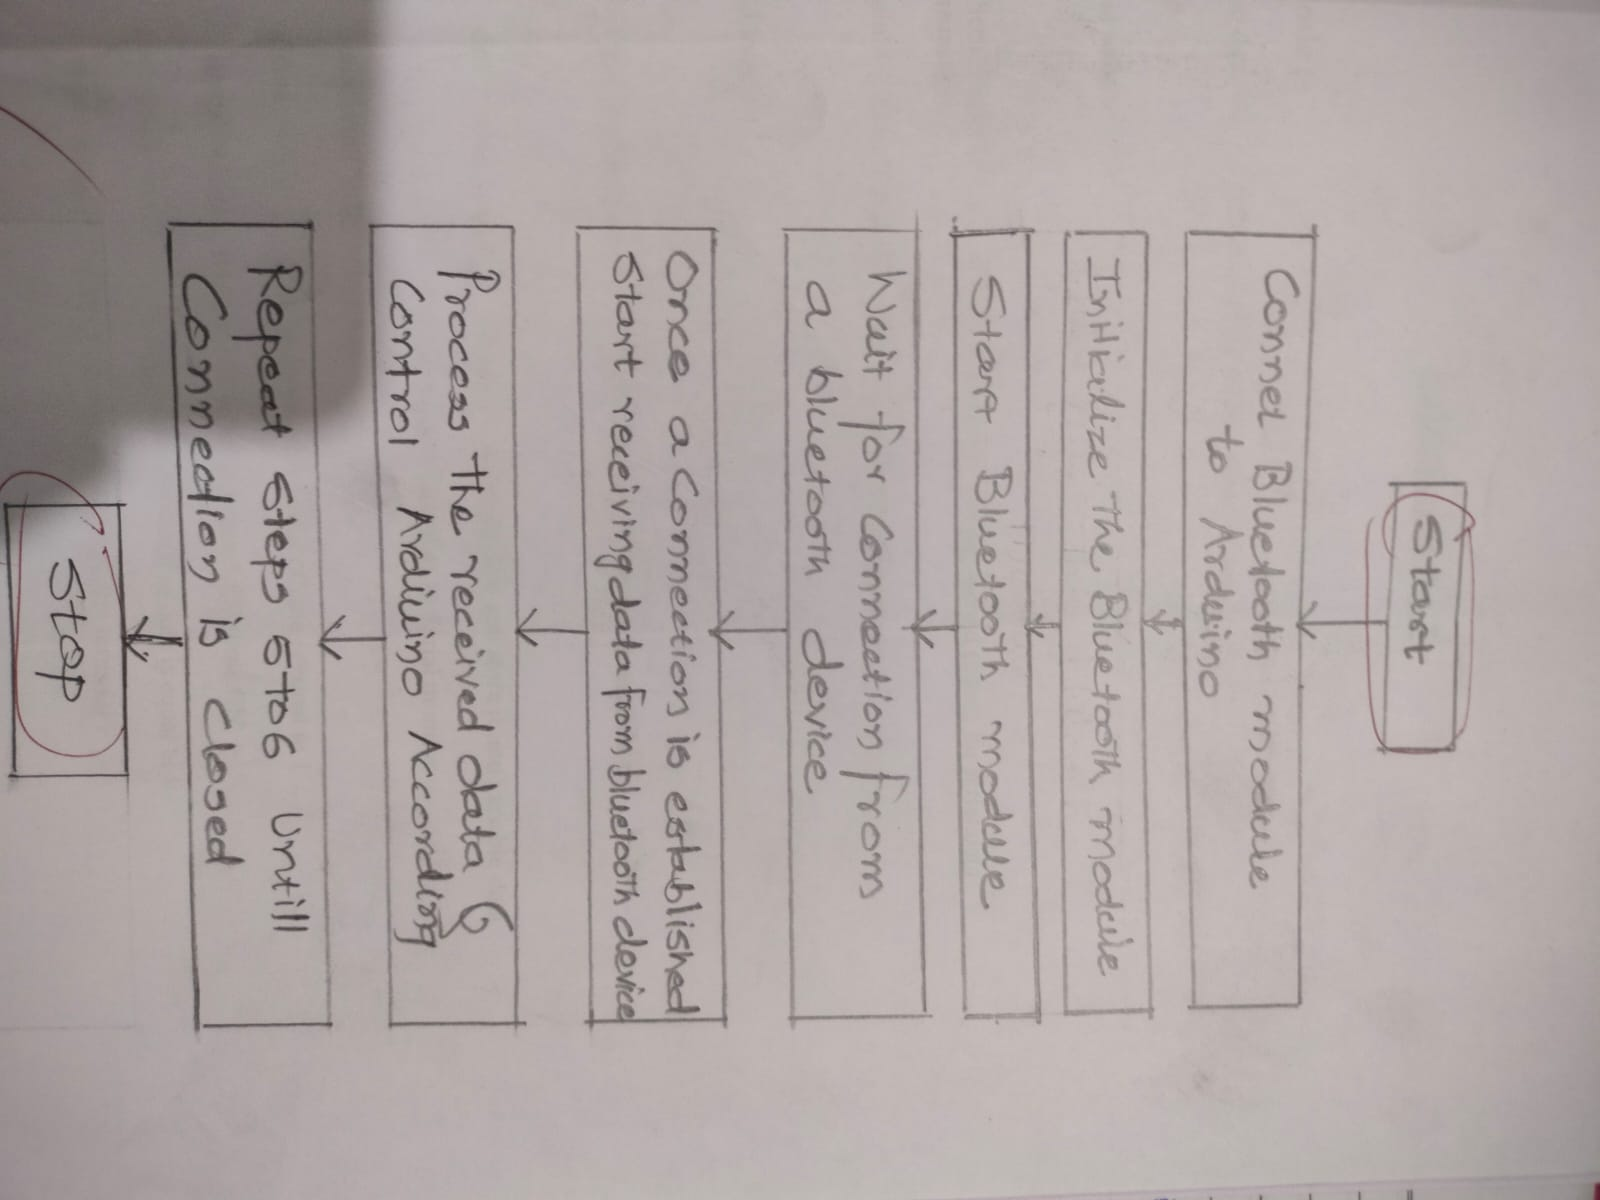 Start
Connet Bluetooth module
to Arduino
Initialize the Bluetooth module
Start Bluetooth module
Wait for Connection from
a bluetooth device
Once a Connection is established
Start receiving data from bluetooth device
Process the received data &
Control Arduino According
Repeat Steps 5 to 6 Untill
Connection is Closed
Stop